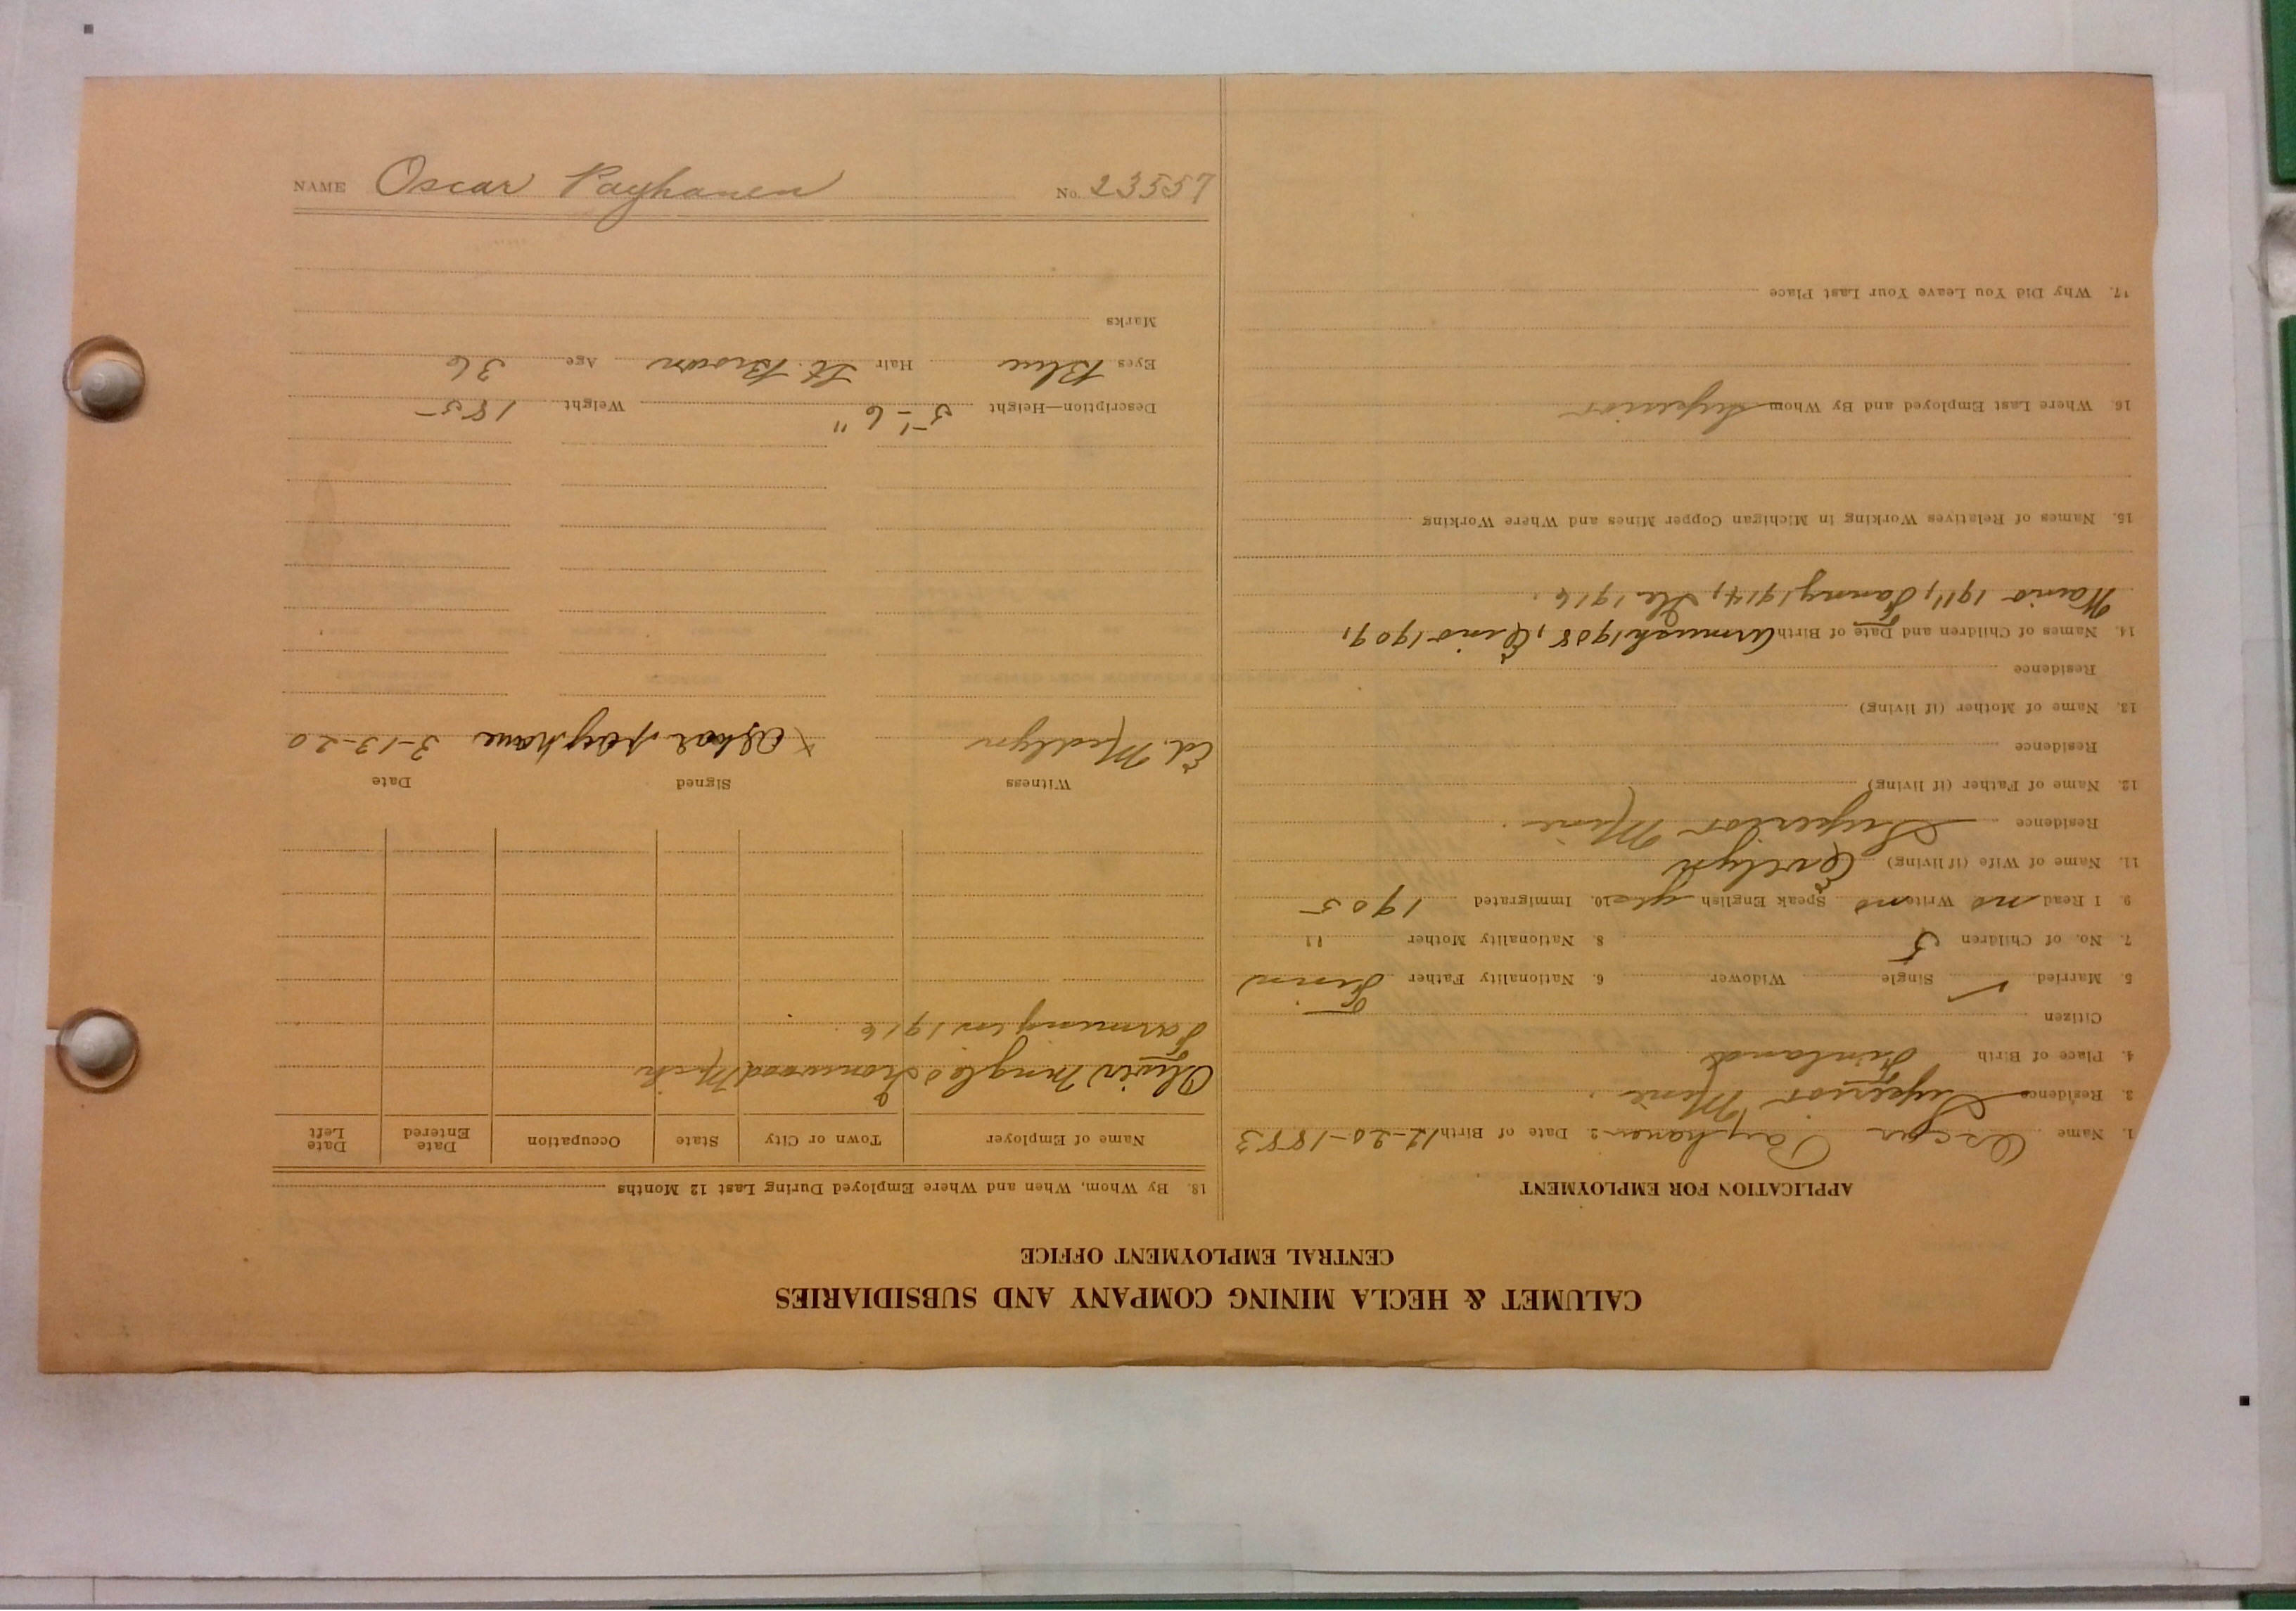 CALUMET & HECLA MINING COMPANY AND SUBSIDIARIES
CENTRAL EMPLOYMENT OFFICE
APPLICATION FOR EMPLOYMENT
1. Name Oscar Payhanen 2. Date of Birth 12-20-1883
3. Residence Superior Mine.
4. Place of Birth Finland
Citizen
5. Married ✓ Single Widower 6. Nationality Father Finn
7. No. of Children 5 8. Nationality Mother "
9. I Read no Write no Speak English yes 10. Immigrated 1905
11. Name of Wife (if living) Evelyn
Residence Superior Mine.
12. Name of Father (if living)
Residence
13. Name of Mother (if living)
Residence
14. Names of Children and Date of Birth 1908, Eino 1909,
Waino 1911, Fanny 1914, 1916.
15. Names of Relatives Working in Michigan Copper Mines and Where Working
16. Where Last Employed and By Whom Superior
17. Why Did You Leave Your Last Place
18. By Whom, When and Where Employed During Last 12 Months
Name of Employer Town or City State Occupation Date Entered Date Left
Oliver Ironwood Mich.
Farming in 1916
Witness Signed Date
Ed. Medlyn x Oskar payhane 3-13-20
Description—Height 5'-6" Weight 185
Eyes Blue Hair Lt. Brown Age 36
Marks
NAME Oscar Payhanen No. 23557